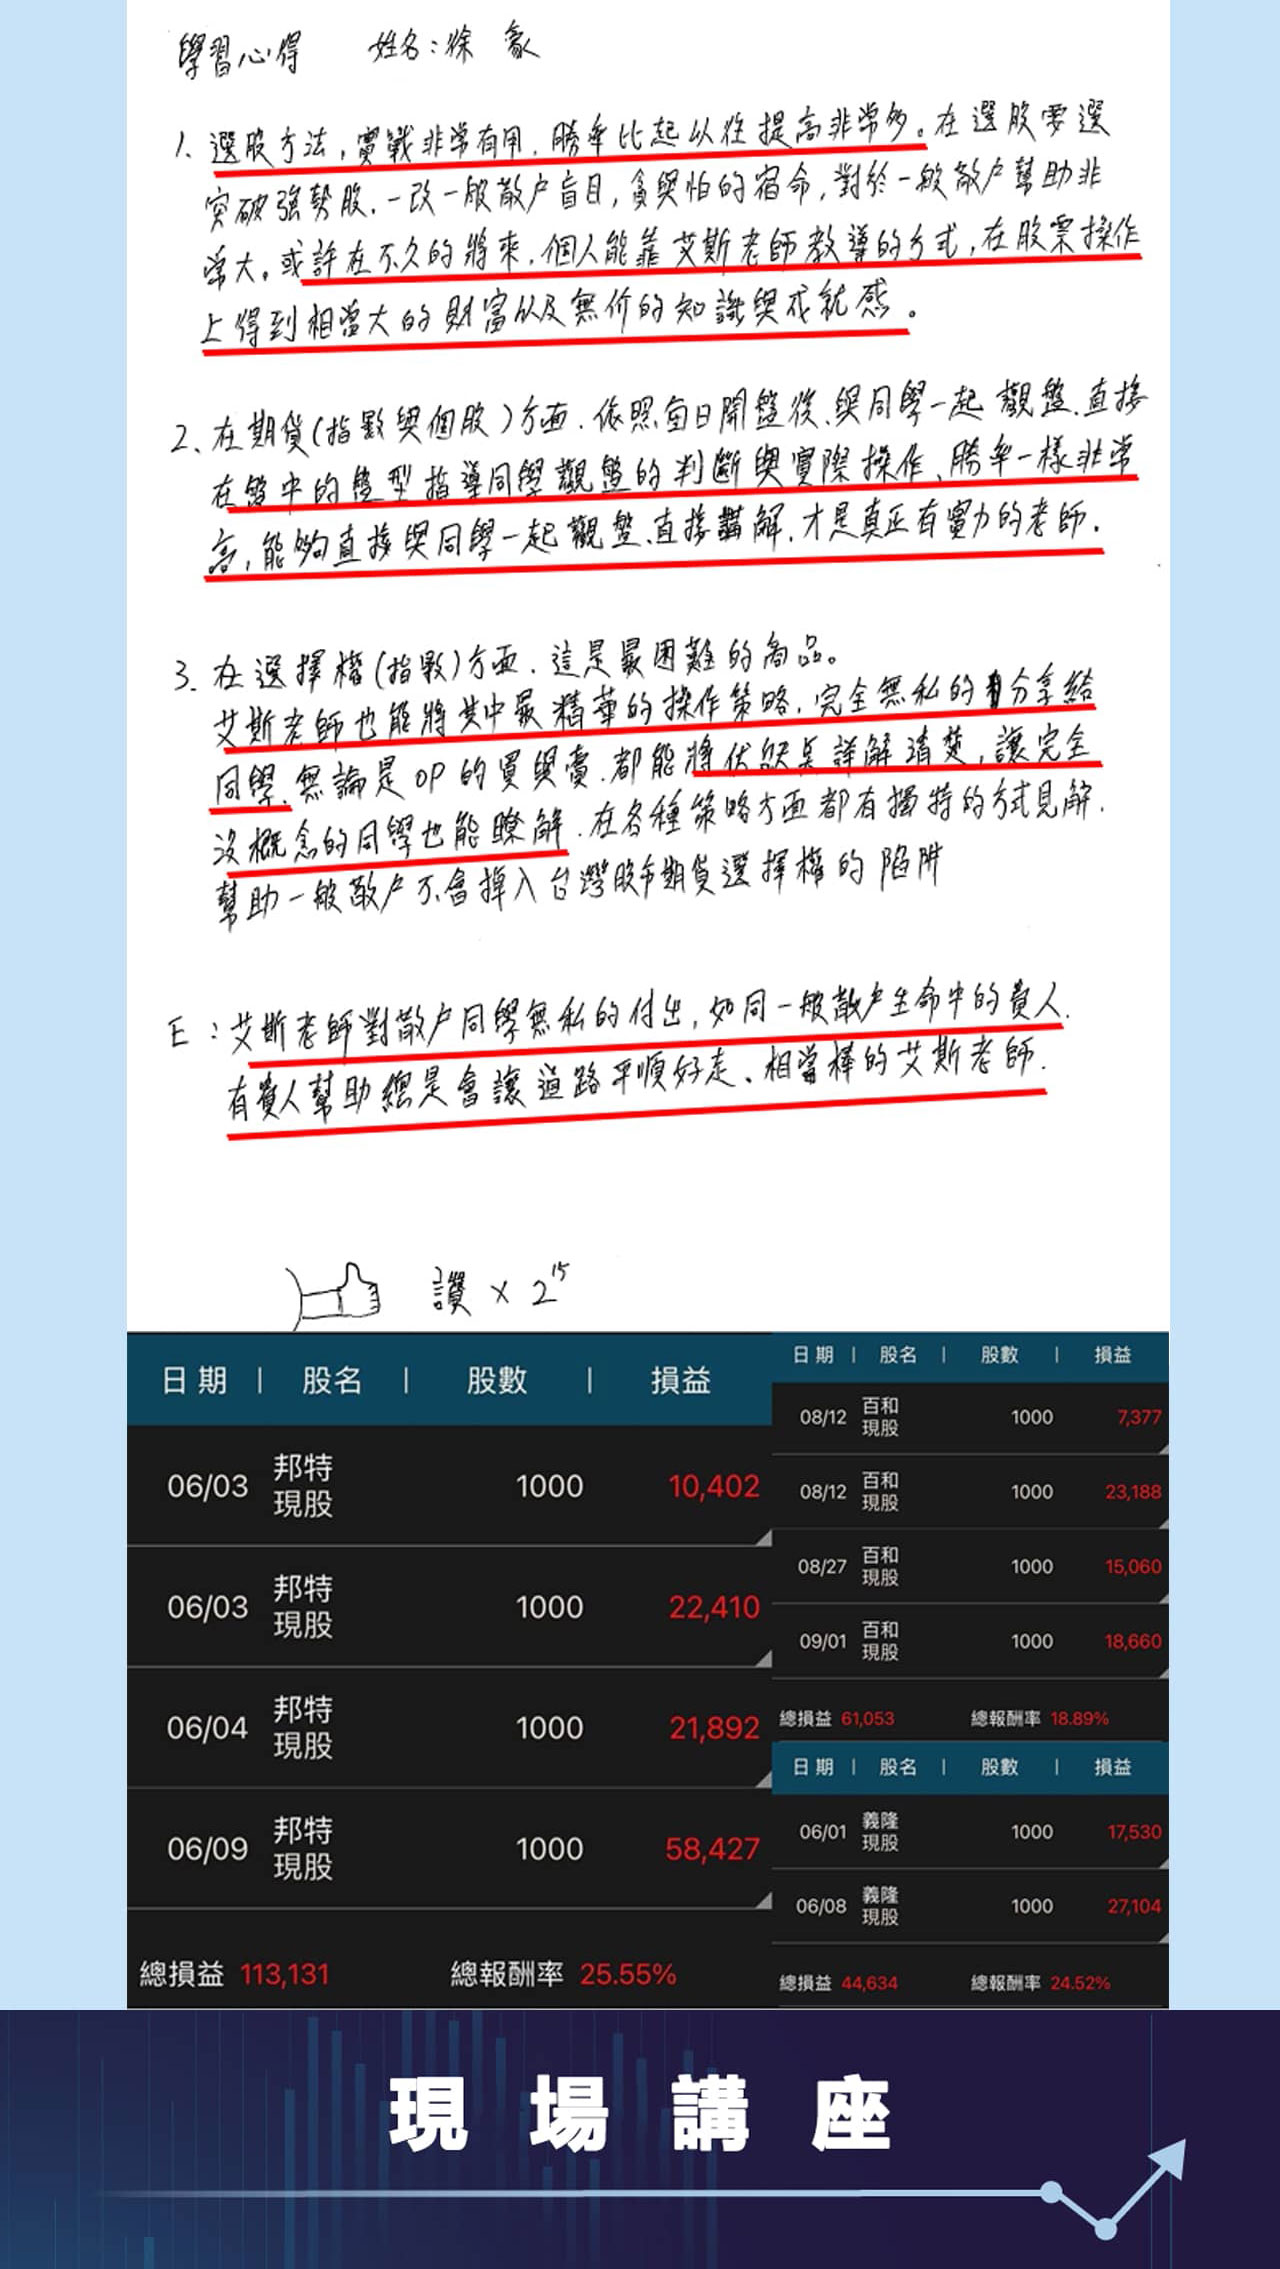 學習心得 姓名:徐 家
1. 選股方法,實戰非常有用,勝率比起以往提高非常多。在選股零選
突破強勢股,一改一般散户盲目,貪與怕的宿命,對於一般散户幫助非
常大。或許在不久的將來,個人能靠艾斯老師教導的方式,在股票操作
上得到相當大的財富以及無价的知識與成就感。
2. 在期貨(指數與個股)方面,依照每日開盤後、與同學一起觀盤、直接
在盤中的盤型指導同學觀盤的判斷與實際操作、勝率一樣非常
高,能夠直接與同學一起觀盤、直接講解,才是真正有實力的老師.
3. 在選擇權(指數)方面,這是最困難的商品。
艾斯老師也能將其中最精華的操作策略,完全無私的分享給
同學、無論是OP的買與賣,都能將優缺點詳解清楚,讓完全
沒概念的同學也能瞭解,在各種策略方面都有獨特的方式見解.
幫助一般散户不會掉入台灣股市期貨選擇權的陷阱
E:艾斯老師對散户同學無私的付出,如同一般散户生命中的貴人.
有貴人幫助總是會讓道路平順好走、相當棒的艾斯老師.
讚 × 2¹⁵
日期 | 股名 | 股數 | 損益
06/03 邦特 現股 1000 10,402
06/03 邦特 現股 1000 22,410
06/04 邦特 現股 1000 21,892
06/09 邦特 現股 1000 58,427
總損益 113,131 總報酬率 25.55%
日期 | 股名 | 股數 | 損益
08/12 百和 現股 1000 7,377
08/12 百和 現股 1000 23,188
08/27 百和 現股 1000 15,060
09/01 百和 現股 1000 18,660
總損益 61,053 總報酬率 18.89%
日期 | 股名 | 股數 | 損益
06/01 義隆 現股 1000 17,530
06/08 義隆 現股 1000 27,104
總損益 44,634 總報酬率 24.52%
現場講座